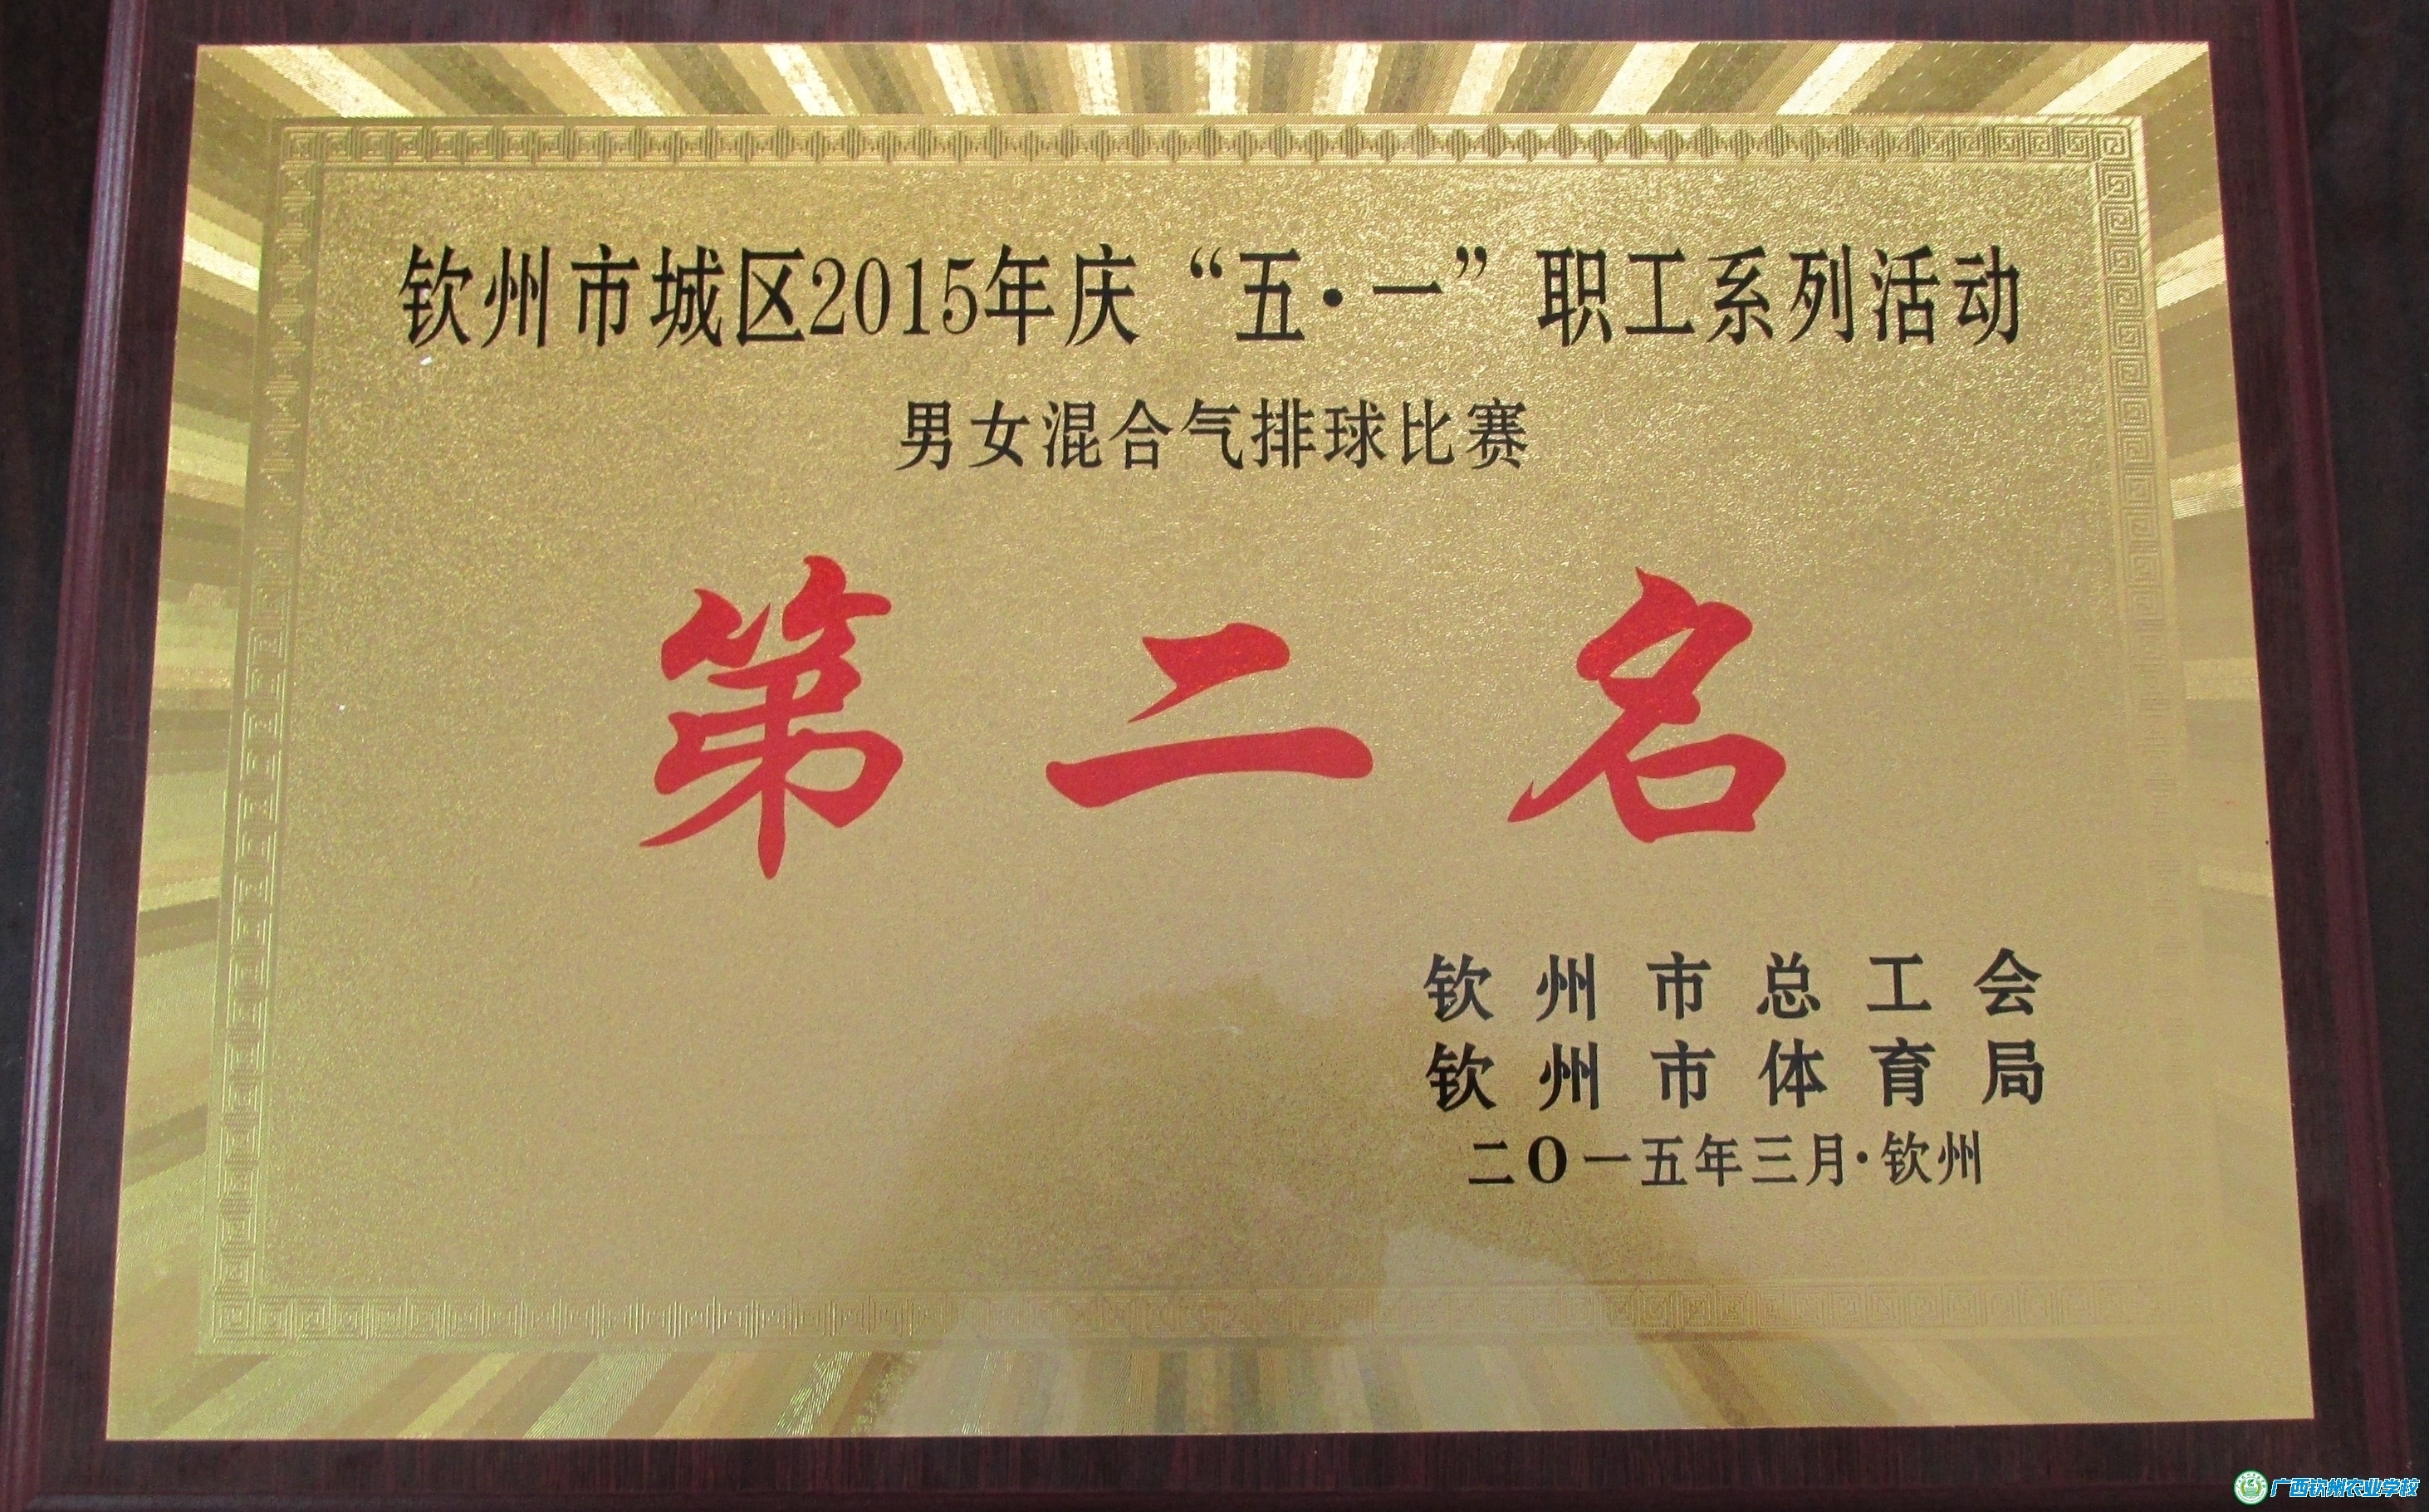 钦州市城区2015年庆“五·一”职工系列活动
男女混合气排球比赛
第二名
钦州市总工会
钦州市体育局
二O一五年三月·钦州
广西钦州农业学校